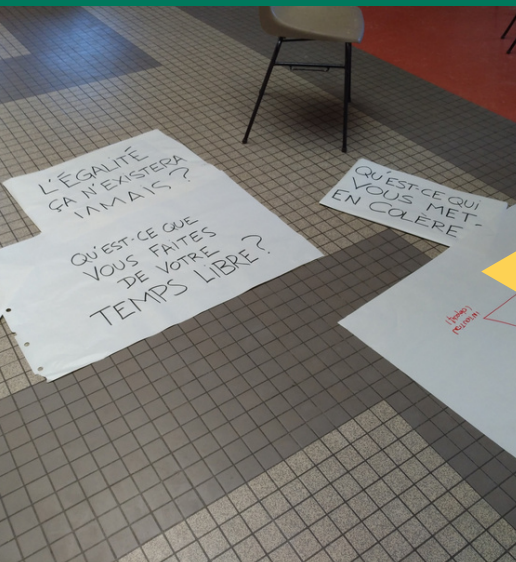 L'ÉGALITÉ
ÇA N'EXISTERA
JAMAIS ?
QU'EST-CE QUE
VOUS FAITES
DE VOTRE
TEMPS LIBRE ?
QU'EST-CE QUI
VOUS MET-
EN COLÈRE